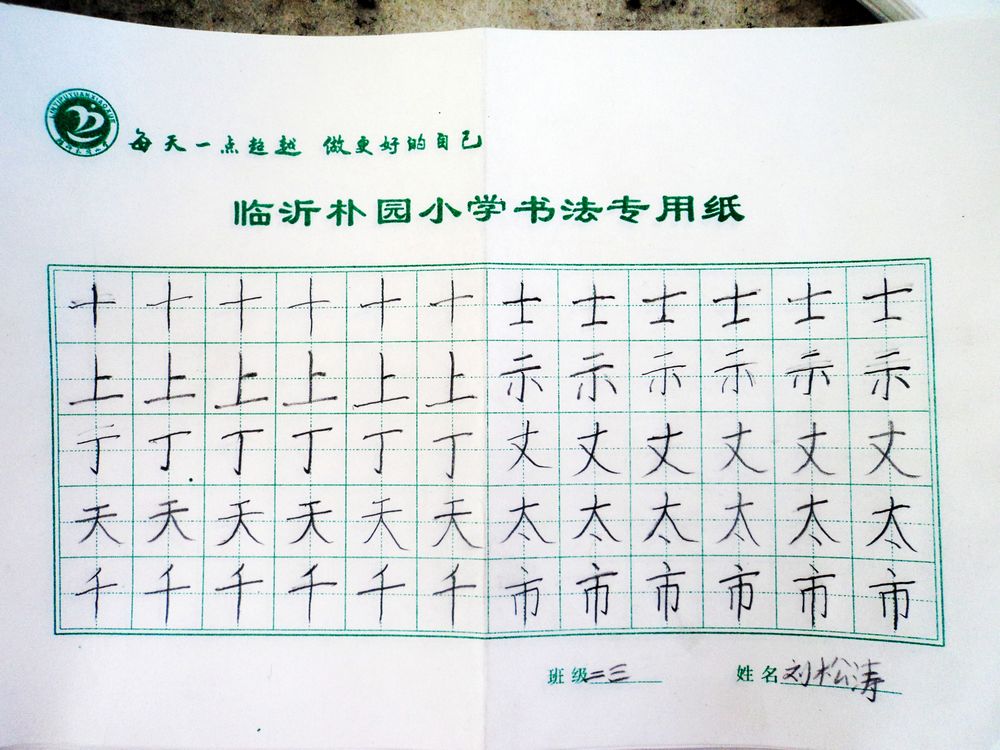 LINYIPUYUANXIAOXUE
每天一点超越 做更好的自己
临沂朴园小学书法专用纸
十十十十十十士士士士士士
上上上上上上示示示示示示
亍丁丁丁丁丁丈丈丈丈丈丈
天天天天天天太太太太太太
千千千千千千市市市市市市
班级二三 姓名刘松涛